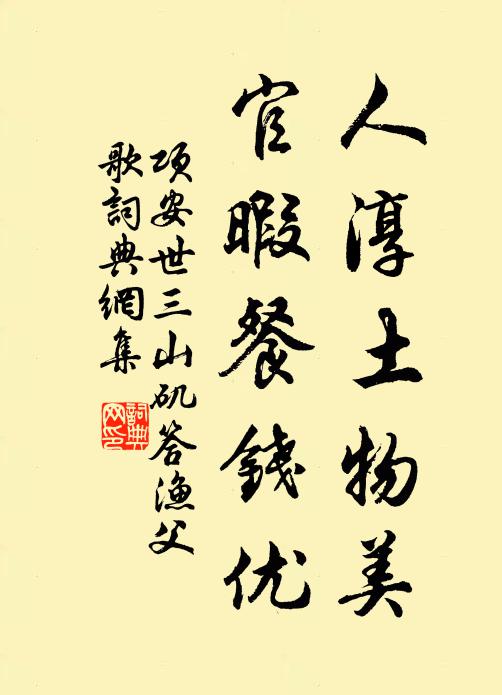 人淳土物美
官暇餐錢优
項安世三山矶答漁父
歌詞典網集
詞典网印